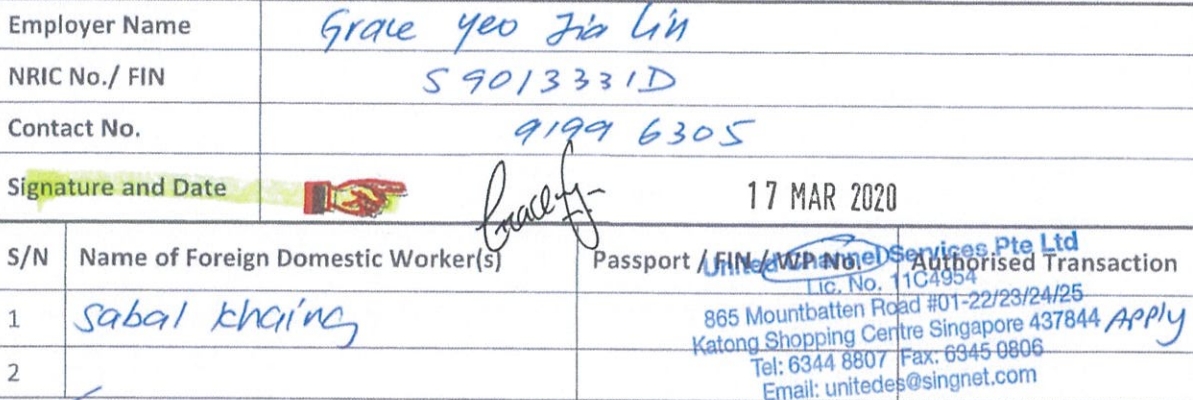 Employer Name Grace Yeo Jia Lin
NRIC No./ FIN S9013331D
Contact No. 9199 6305
Signature and Date Grace 17 MAR 2020
S/N Name of Foreign Domestic Worker(s) Passport / FIN / WP No. Authorised Transaction
United Channel Services Pte Ltd
Lic. No. 11C4954
1 Sabal Khaing APPly
865 Mountbatten Road #01-22/23/24/25
Katong Shopping Centre Singapore 437844
2
Tel: 6344 8807 Fax: 6345 0806
Email: unitedes@singnet.com